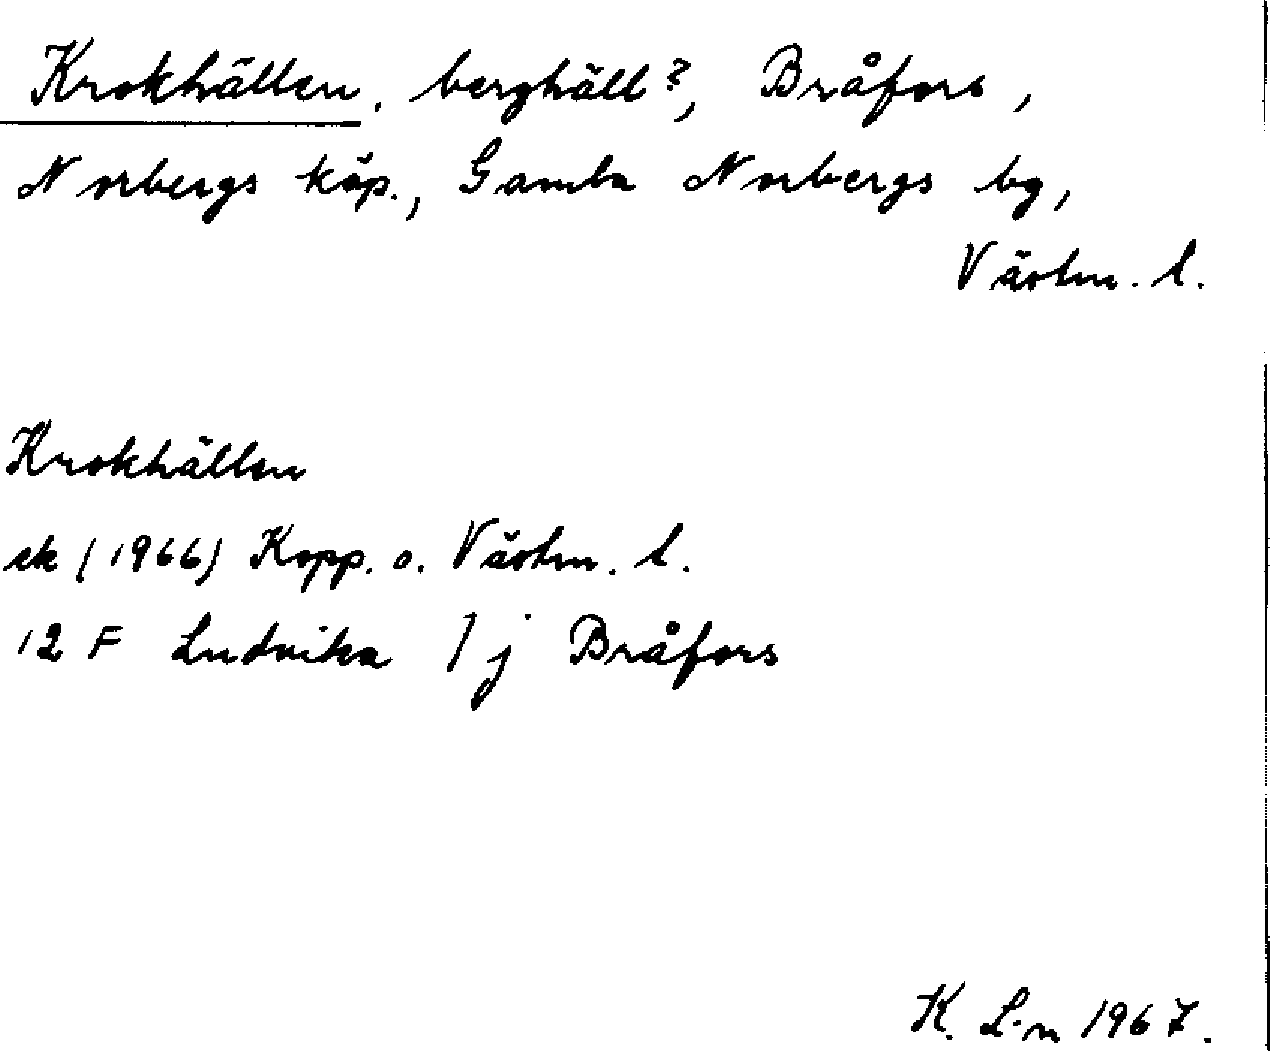 Krokhällen, berghäll?, Bråfors,
Norbergs köp., Gamla Norbergs bg,
Västm. l.
Krokhällen
ek (1966) Kopp. o. Västm. l.
12 F Ludvika 1 j Bråfors
K. L-n 1967.